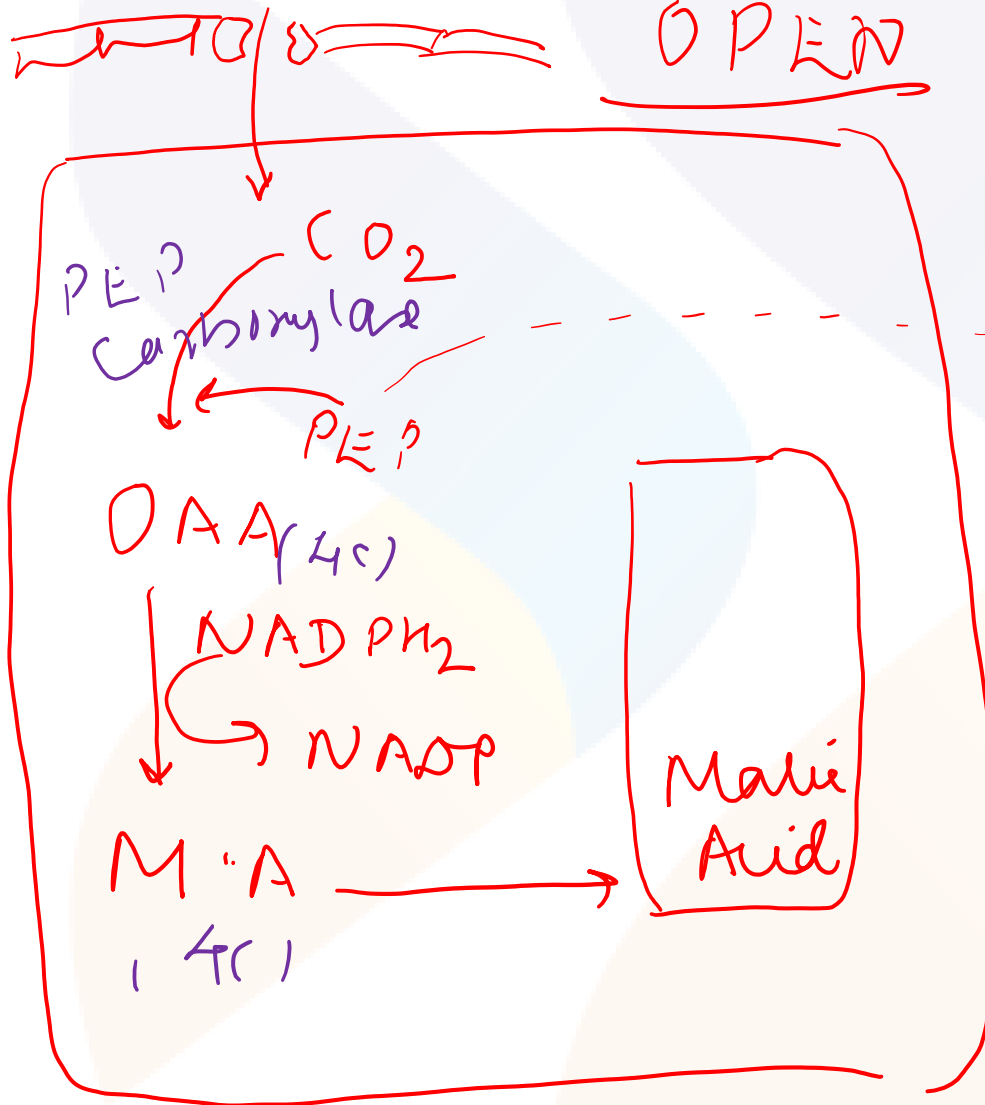 OPEN
CO2
PEP
Carboxylase
PEP
OAA (4C)
NADPH2
NADP
Malic
Acid
M.A
(4C)